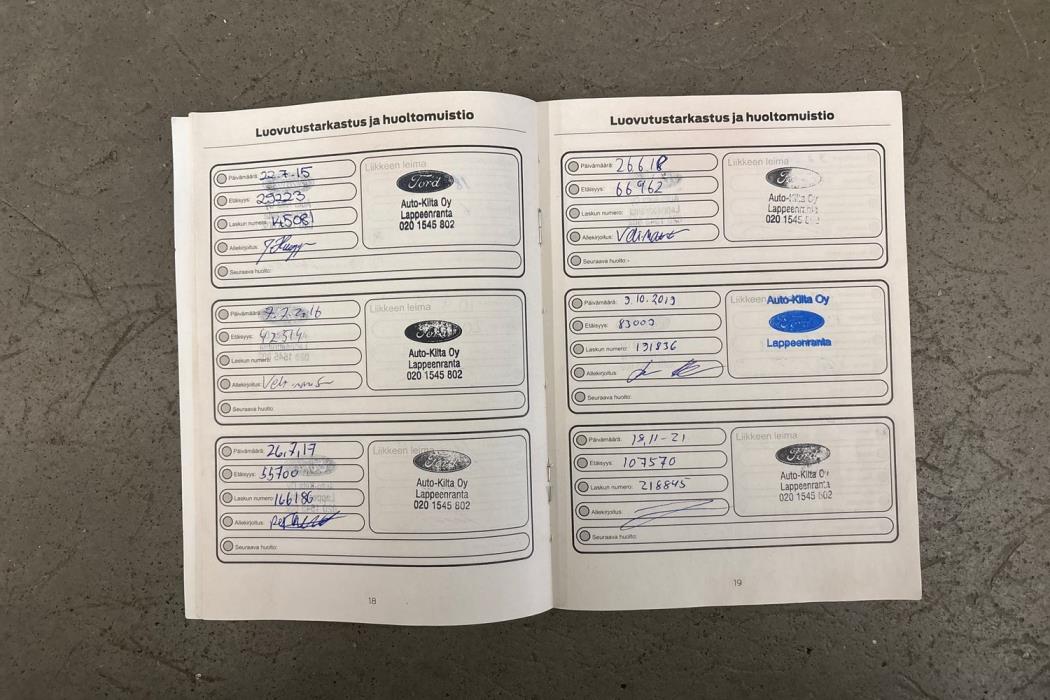 Luovutustarkastus ja huoltomuistio
Päivämäärä: 22.7.15
Etäisyys: 29223
Laskun numero: 14508
Allekirjoitus:
Seuraava huolto:
Liikkeen leima
Ford
Auto-Kilta Oy
Lappeenranta
020 1545 802
Päivämäärä: 7.7.2016
Etäisyys: 42514
Laskun numero:
Allekirjoitus:
Seuraava huolto:
Liikkeen leima
Ford
Auto-Kilta Oy
Lappeenranta
020 1545 802
Päivämäärä: 26,7,17
Etäisyys: 55700
Laskun numero: 166186
Allekirjoitus:
Seuraava huolto:
Liikkeen leima
Ford
Auto-Kilta Oy
Lappeenranta
020 1545 802
18
Luovutustarkastus ja huoltomuistio
Päivämäärä: 26.6.18
Etäisyys: 66962
Laskun numero:
Allekirjoitus:
Seuraava huolto: -
Liikkeen leima
Ford
Auto-Kilta Oy
Lappeenranta
020 1545
Päivämäärä: 9.10.2019
Etäisyys: 83000
Laskun numero: 191836
Allekirjoitus:
Seuraava huolto:
Liikkeen
Auto-Kilta Oy
Ford
Lappeenranta
Päivämäärä: 18,11-21
Etäisyys: 107570
Laskun numero: 218845
Allekirjoitus:
Seuraava huolto:
Liikkeen leima
Ford
Auto-Kilta Oy
Lappeenranta
020 1545 802
19